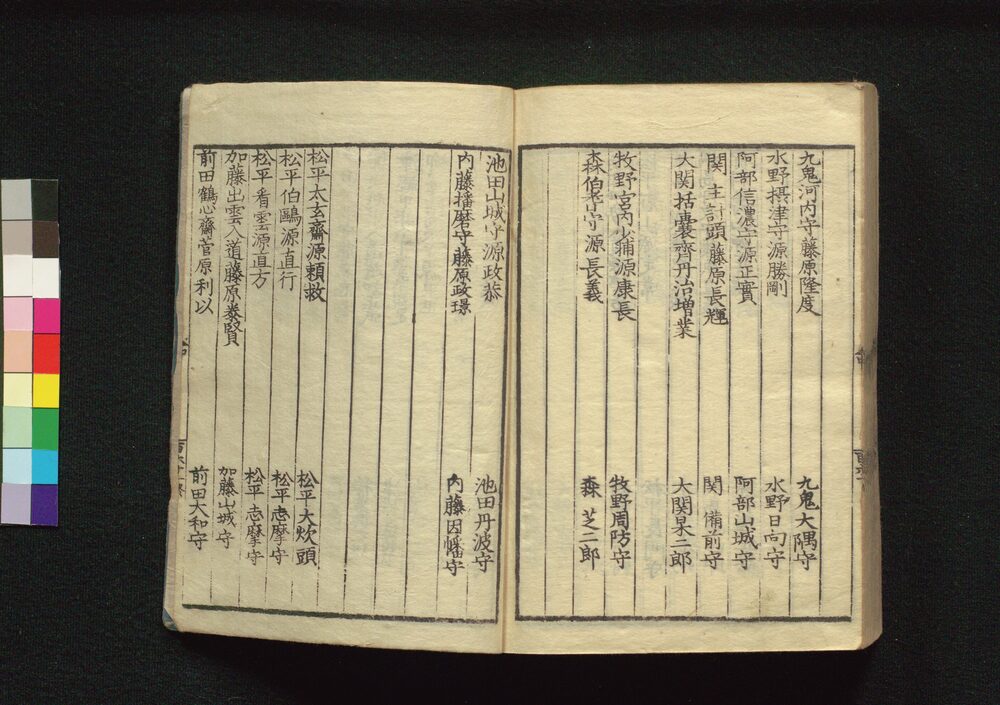 九鬼河内守藤原隆度 九鬼大隅守
水野摂津守源勝剛 水野日向守
阿部信濃守源正實 阿部山城守
関主計頭藤原長輝 関備前守
大関括嚢齊丹治増業 大関杲二郎
牧野宮内少輔源康長 牧野周防守
森伯耆守源長義 森芝二郎
池田山城守源政恭 池田丹波守
内藤播磨守藤原政璟 内藤因幡守
松平太玄齋源頼救 松平大炊頭
松平伯鷗源直行 松平志摩守
松平看雲源直方 松平志摩守
加藤出雲入道藤原泰賢 加藤山城守
前田鶴心齋菅原利以 前田大和守